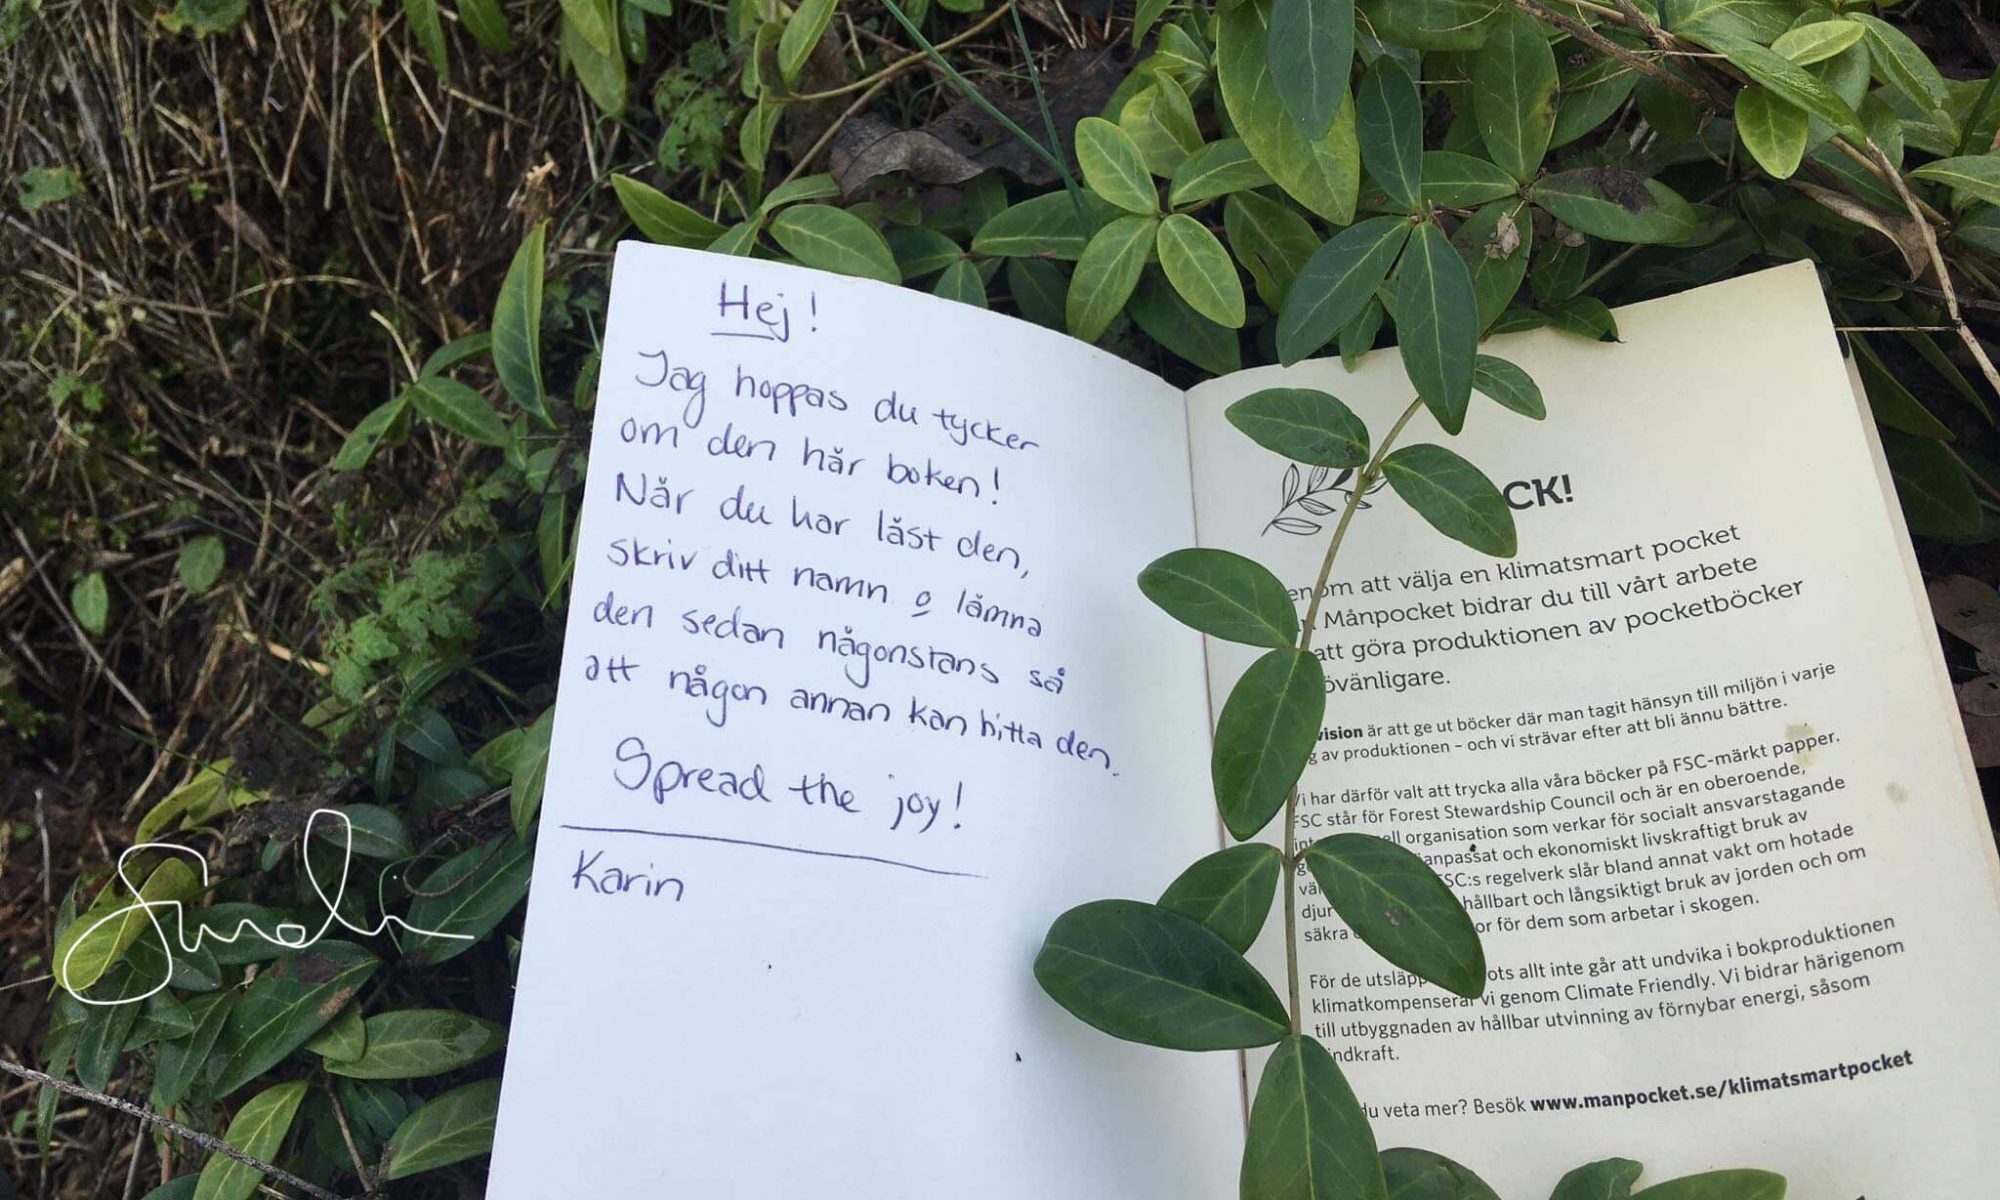 Hej!
Jag hoppas du tycker
om den här boken!
När du har läst den,
skriv ditt namn o lämna
den sedan någonstans så
att någon annan kan hitta den.
Spread the joy!
Karin
CK!
att välja en klimatsmart pocket
Månpocket bidrar du till vårt arbete
att göra produktionen av pocketböcker
vision är att ge ut böcker där man tagit hänsyn till miljön i varje
av produktionen – och vi strävar efter att bli ännu bättre.
Vi har därför valt att trycka alla våra böcker på FSC-märkt papper.
FSC står för Forest Stewardship Council och är en oberoende,
organisation som verkar för socialt ansvarstagande
och ekonomiskt livskraftigt bruk av
FSC:s regelverk slår bland annat vakt om hotade
djur hållbart och långsiktigt bruk av jorden och om
säkra för dem som arbetar i skogen.
För de utsläpp allt inte går att undvika i bokproduktionen
klimatkompenserar vi genom Climate Friendly. Vi bidrar härigenom
till utbyggnaden av hållbar utvinning av förnybar energi, såsom
vindkraft.
du veta mer? Besök www.manpocket.se/klimatsmartpocket